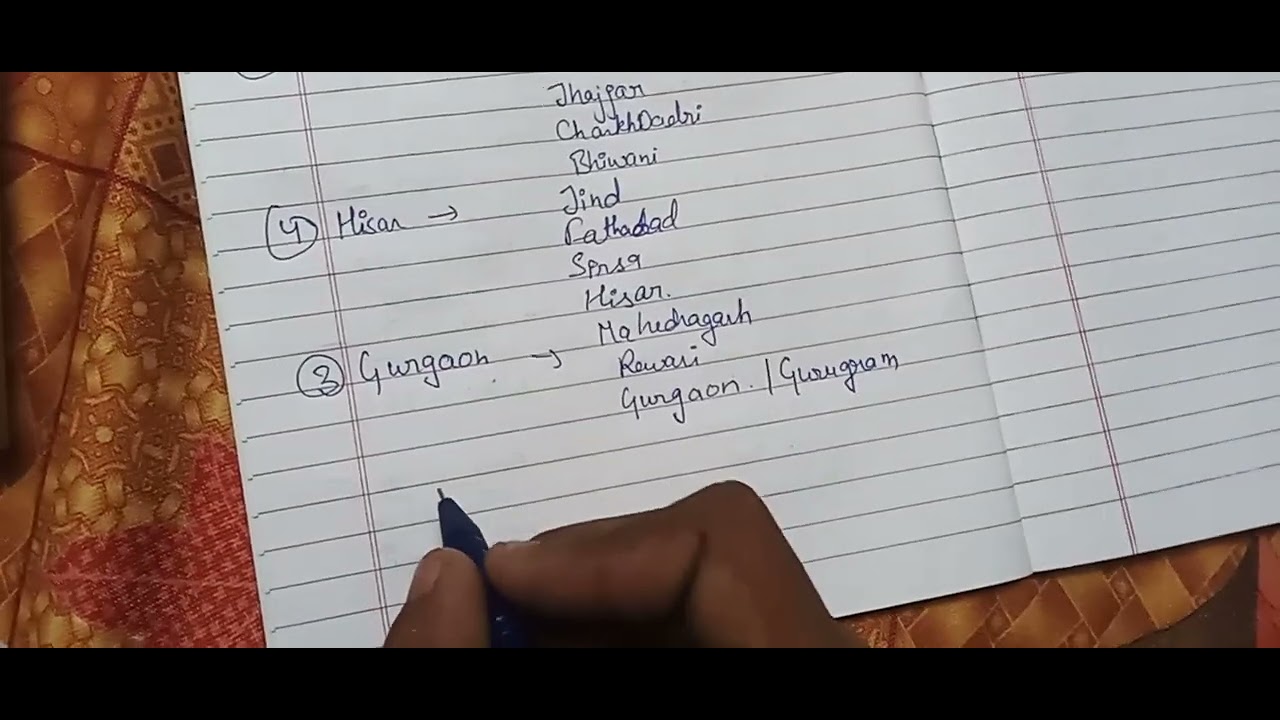 Jhajjar
CharkhDadri
Bhiwani
Jind
④ Hisar →
Fathabad
Sirsa
Hisar.
Mahedragarh
③ Gurgaon →
Rewari
Gurgaon. / Gurugram